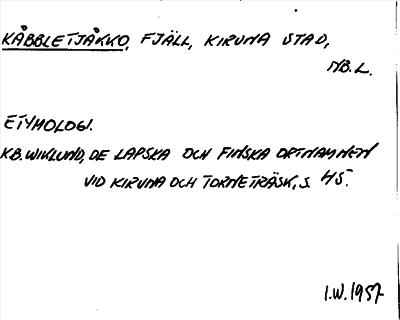 KÅBBLETJÅKKO, FJÄLL, KIRUNA STAD,
NB.L.
ETYMOLOGI.
K.B. WIKLUND, DE LAPSKA OCH FINSKA ORTNAMNEN
VID KIRUNA OCH TORNETRÄSK, S. 45.
I.W. 1957